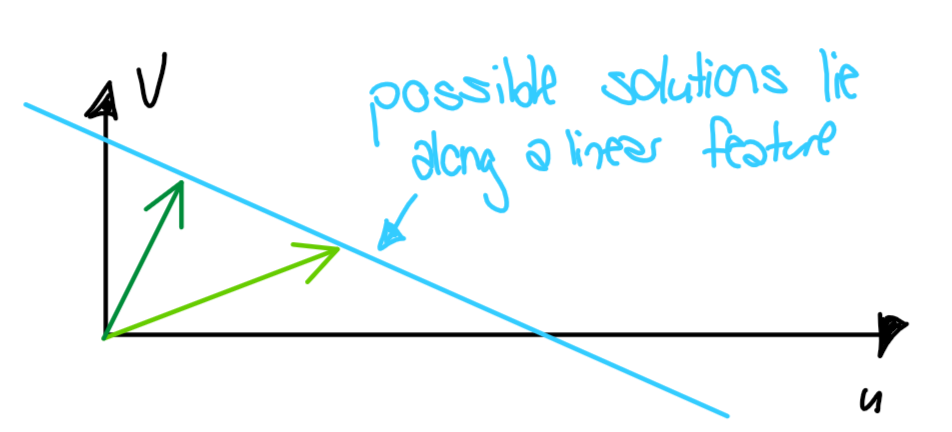 V
possible solutions lie
along a linear feature
u